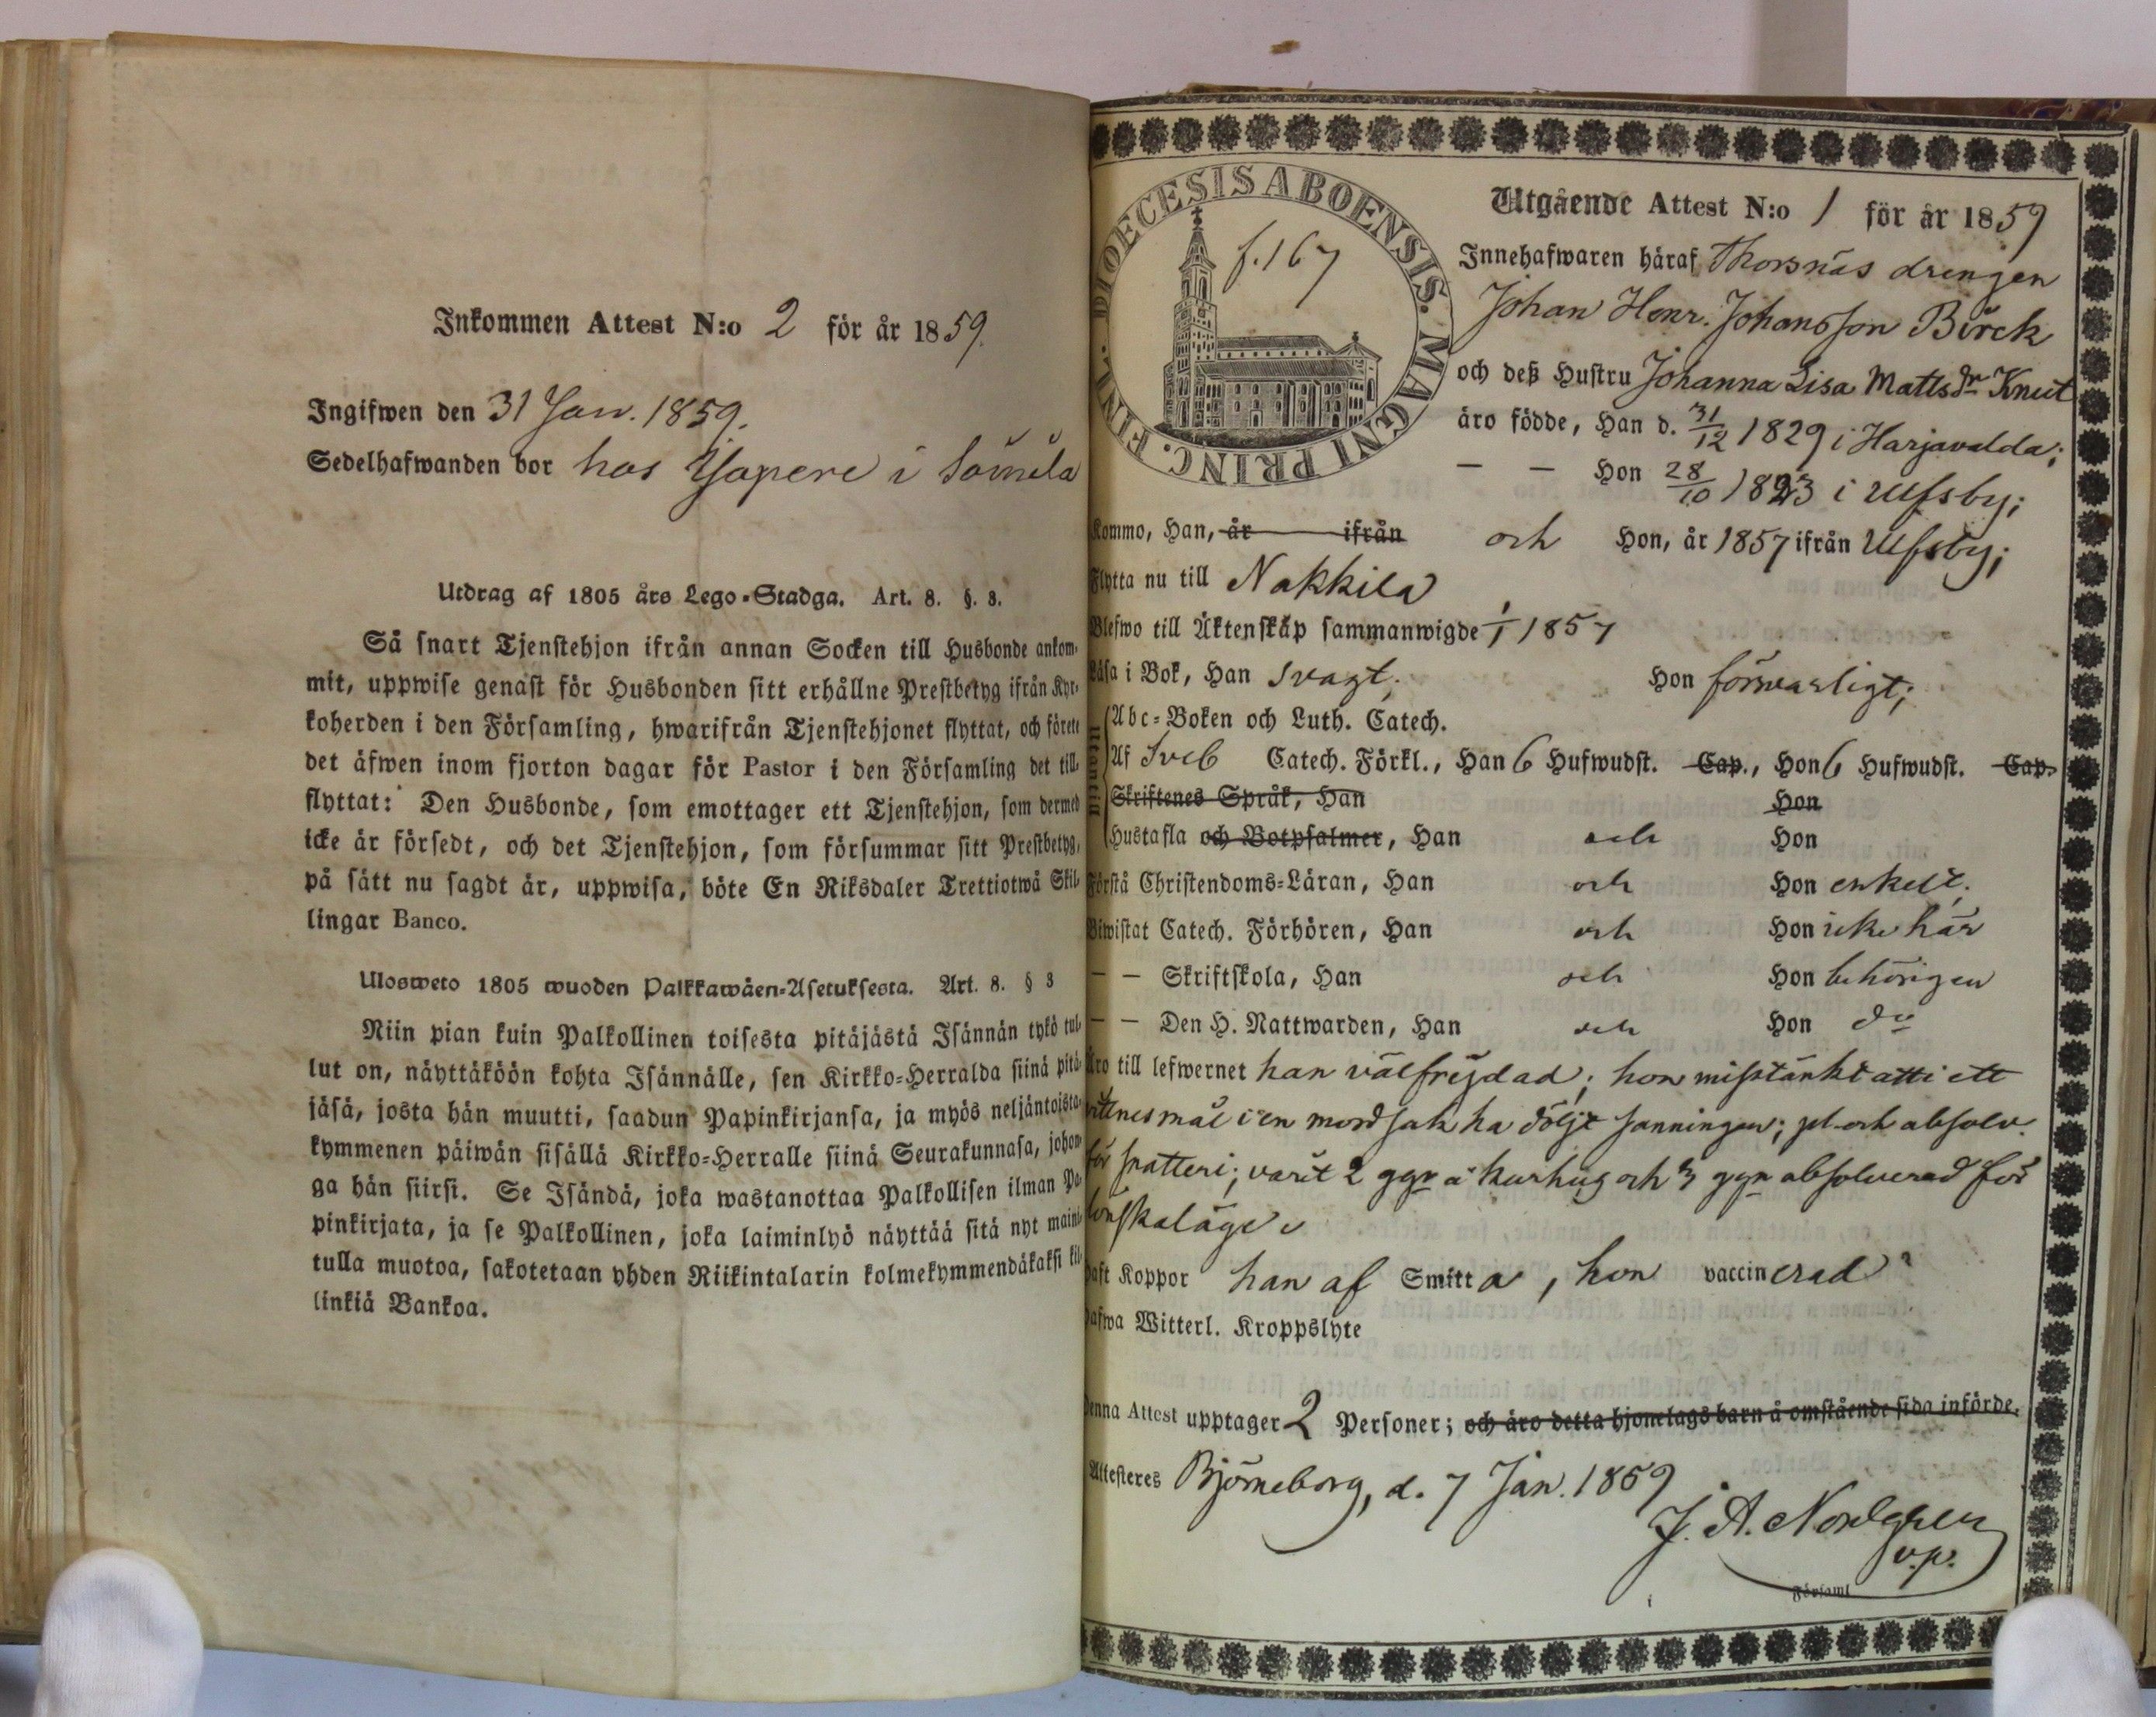 Inkommen Attest N:o 2 för år 1859.
Ingifwen den 31 Jan. 1859.
Sedelhafwanden bor hos Yjapere i Sömela
Utdrag af 1805 års Lego-Stadga. Art. 8. §. 3.
Så snart Tjenstehjon ifrån annan Socken till Husbonde ankom-
mit, uppwise genast för Husbonden sitt erhållne Prestbetyg ifrån Kyr-
koherden i den Församling, hwarifrån Tjenstehjonet flyttat, och förete
det äfwen inom fjorton dagar för Pastor i den Församling det till-
flyttat: Den Husbonde, som emottager ett Tjenstehjon, som dermed
icke är försedt, och det Tjenstehjon, som försummar sitt Prestbetyg,
på sätt nu sagdt är, uppwisa, böte En Riksdaler Trettiotwå Skil-
lingar Banco.
Ulosweto 1805 wuoden Palkkawäen-Asetuksesta. Art. 8. § 3
Niin pian kuin Palkollinen toisesta pitäjästä Isännän tykö tul-
lut on, näyttäköön kohta Isännälle, sen Kirkko-Herralda siinä pitä-
jäsä, josta hän muutti, saadun Papinkirjansa, ja myös neljäntoista-
kymmenen päiwän sisällä Kirkko-Herralle siinä Seurakunnasa, johon-
ga hän siirsi. Se Isändä, joka wastanottaa Palkollisen ilman Pa-
pinkirjata, ja se Palkollinen, joka laiminlyö näyttää sitä nyt maini-
tulla muotoa, sakotetaan yhden Riikintalarin kolmekymmendäkaksi kil-
linkiä Bankoa.
DIOECESIS ABOENSIS. MAGNI PRINC. FINL.
f. 167
Utgående Attest N:o 1 för år 1859
Innehafwaren häraf Thorsnäs drengen
Johan Henr. Johansson Birck
och deß Hustru Johanna Lisa Mattsdr Knut
äro födde, Han d. 31/12 1829 i Harjavalda;
— — Hon 28/10 1823 i Ulfsby;
Kommo, Han, år ifrån och Hon, år 1857 ifrån Ulfsby;
Flytta nu till Nakkila
Blefwo till Äktenskap sammanwigde 1/1 1857
Läsa i Bok, Han svagt; Hon försvarligt;
Utantill
Abc-Boken och Luth. Catech.
Af Sveb Catech. Förkl., Han 6 Hufwudst. Cap., Hon 6 Hufwudst. Cap.
Skriftenes Språk, Han Hon
Hustafla och Botpsalmer, Han och Hon
Förstå Christendoms-Läran, Han och Hon enkelt.
Biwistat Catech. Förhören, Han och Hon icke här
— — Skriftskola, Han och Hon behörigen
— — Den H. Nattwarden, Han och Hon do
Äro till lefwernet han välfrejdad; hon misstänkt att i ett
vittnesmål i en mordsak ha döljt sanningen; pl. och absolv.
för snatteri; varit 2 ggr å kurhus och 3 ggr absolverad för
lönskaläge
Haft Koppor han af Smitta, hon vaccinerad
Hafwa Witterl. Kroppslyte
Denna Attest upptager 2 Personer; och äro detta hjonelags barn å omstående sida införde.
Attesteres Björneborg, d. 7 Jan. 1859
J. A. Nordgren
v.p.
i Församl